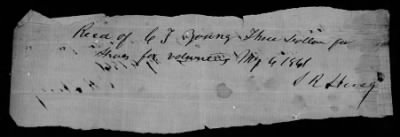 Recd of C T Young Three Dollars for
Shoes for volunteers May 6 1861
S R Henry